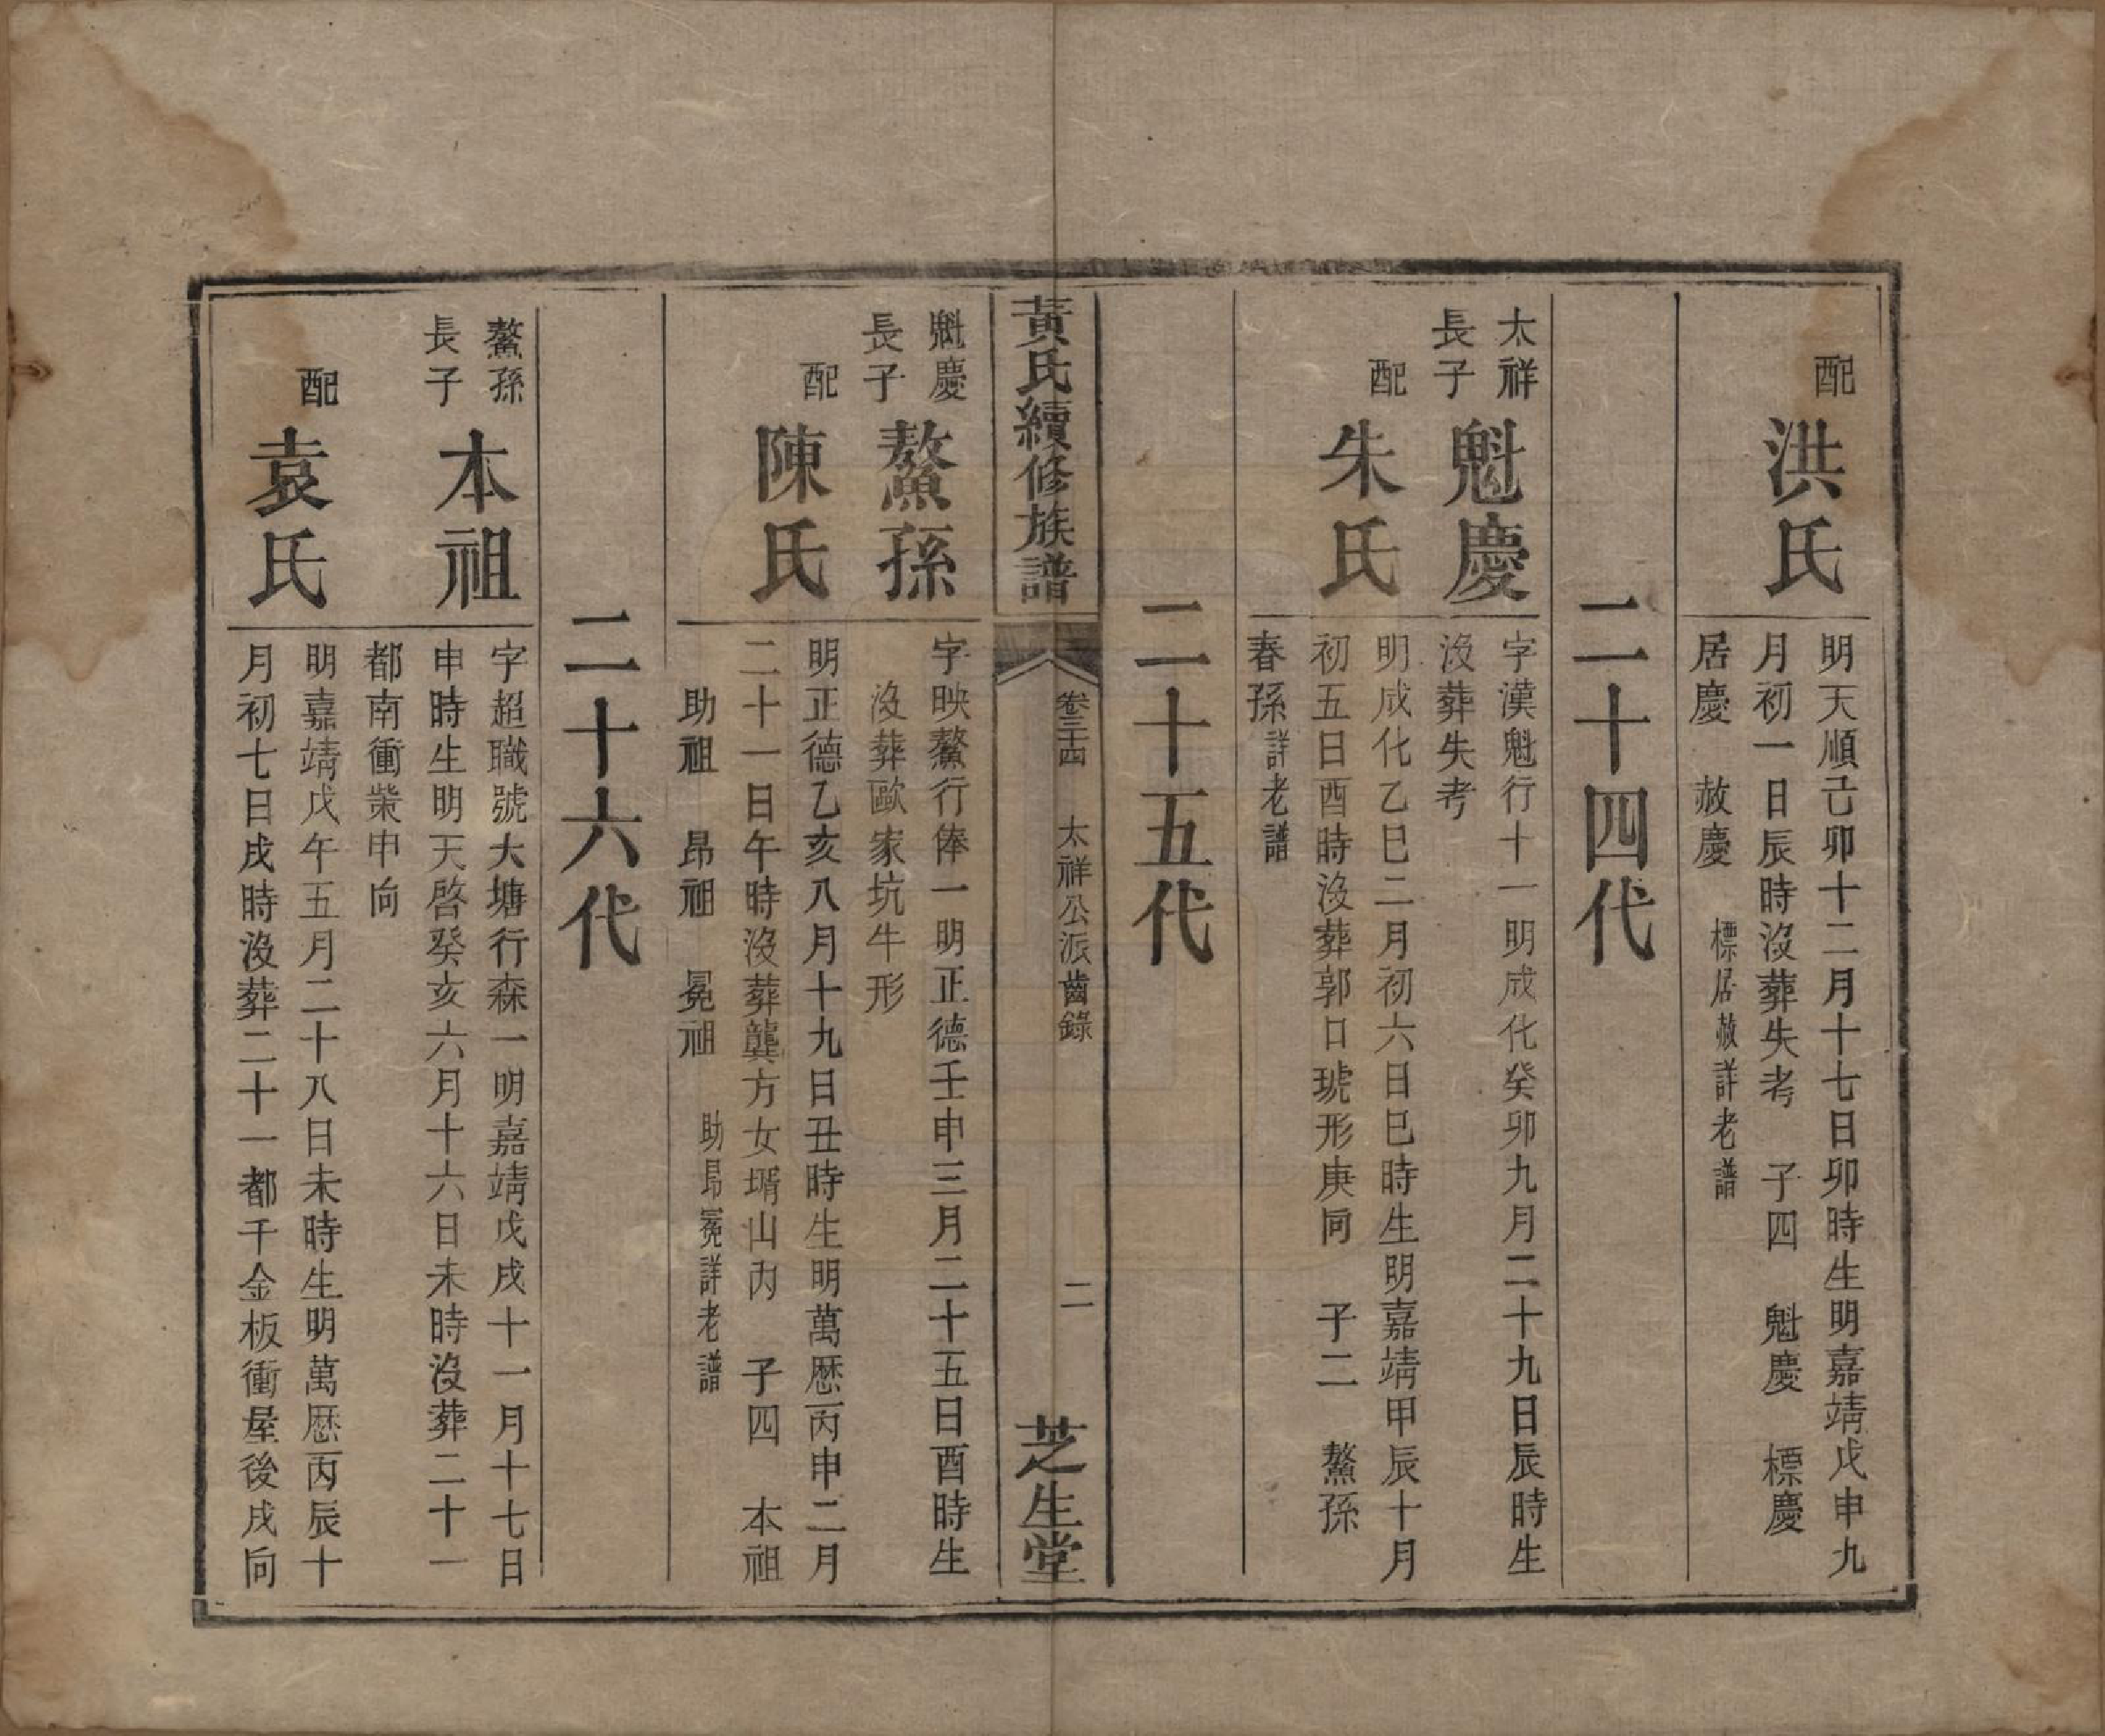 配
洪氏
明天順己卯十二月十七日卯時生明嘉靖戊申九
月初一日辰時沒葬失考　子四　魁慶　標慶
居慶　赦慶　標居赦詳老譜
二十四代
太祥
長子
魁慶
字漢魁行十一明成化癸卯九月二十九日辰時生
沒葬失考
配
朱氏
明成化乙巳二月初六日巳時生明嘉靖甲辰十月
初五日酉時沒葬郭口琥形庚向　子二　鰲孫
春孫詳老譜
二十五代
黃氏續修族譜
卷三十四　太祥公派齒錄
二
芝生堂
魁慶
長子
鰲孫
字映鰲行俸一明正德壬申三月二十五日酉時生
沒葬歐家坑牛形
配
陳氏
明正德乙亥八月十九日丑時生明萬歷丙申二月
二十一日午時沒葬龔方女壻山丙　子四　本祖
助祖　昂祖　冕祖　助昂冕詳老譜
二十六代
鰲孫
長子
本祖
字超職號大塘行森一明嘉靖戊戌十一月十七日
申時生明天啓癸亥六月十六日未時沒葬二十一
都南衝柴申向
配
袁氏
明嘉靖戊午五月二十八日未時生明萬歷丙辰十
月初七日戌時沒葬二十一都千金板衝屋後戌向